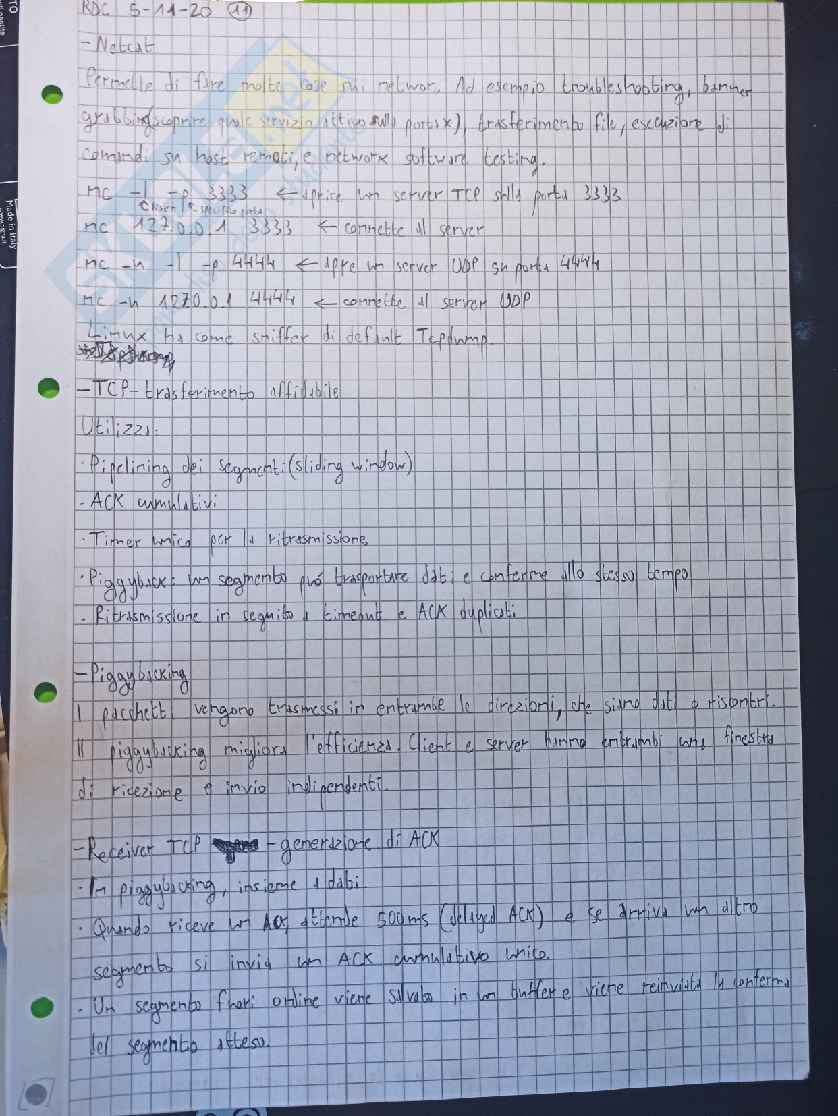 RDC 5-11-20 11
-Netcat
Permette di fare molte cose sui networ. Ad esempio troubleshooting, banner
grabbing(scoprire quale servizio attivo sulla porta x), trasferimento file, esecuzione di
comandi su host remoti, e network software testing.
nc -l -p 3333 ← aprire un server TCP sulla porta 3333
nc 127.0.0.1 3333 ← connette al server
nc -u -l -p 4444 ← apre un server UDP su porta 4444
nc -u 127.0.0.1 4444 ← connette al server UDP
Linux ha come sniffer di default Tcpdump.
-TCP-trasferimento affidabile
Utilizza:
·Pipelining dei segmenti(sliding window)
·ACK cumulativi
·Timer unico per la ritrasmissione
·Piggyback: un segmento può trasportare dati e conferme allo stesso tempo
·Ritrasmissione in seguito a timeout e ACK duplicati
-Piggybacking
I pacchetti vengono trasmessi in entrambe le direzioni, che siano dati o riscontri.
Il piggybacking migliora l'efficienza. Client e server hanno entrambi una finestra
di ricezione e invio indipendenti.
-Receiver TCP -generazione di ACK
·In piggybacking, insieme a dati
·Quando riceve un ACK attende 500ms (delayed ACK) e se arriva un altro
segmento si invia un ACK cumulativo unico.
·Un segmento fuori ordine viene salvato in un buffer e viene reinviata la conferma
del segmento atteso.
SKUOLA.net
Made in Italy